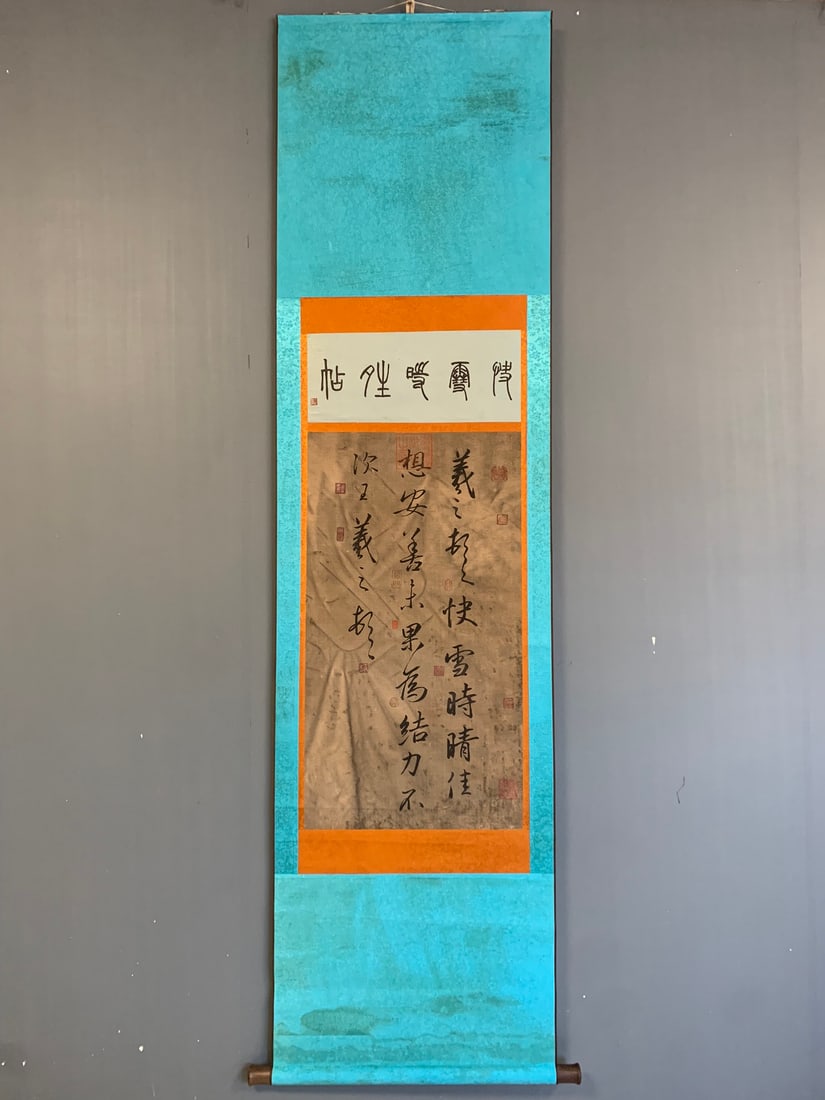 快雪時晴帖
羲之頓首快雪時晴佳
想安善未果為結力不
次王羲之頓首